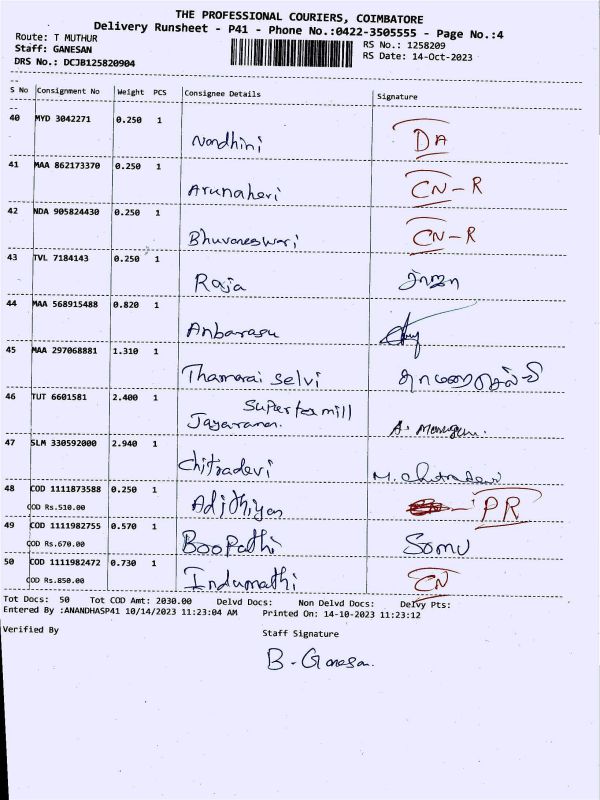 THE PROFESSIONAL COURIERS, COIMBATORE
Delivery Runsheet - P41 - Phone No.:0422-3505555 - Page No.:4
Route: T MUTHUR
RS No.: 1258209
Staff: GANESAN
RS Date: 14-Oct-2023
DRS No.: DCJB125820904
S No Consignment No Weight PCS Consignee Details Signature
40 MYD 3042271 0.250 1
Nandhini DA
41 MAA 862173370 0.250 1
Arunaheri CN-R
42 NDA 905824430 0.250 1
Bhuvaneswari CN-R
43 TVL 7184143 0.250 1
Raja ராஜா
44 MAA 568915488 0.820 1
Anbarasu
45 MAA 297068881 1.310 1
Thamarai Selvi தாமரைசெல்வி
46 TUT 6601581 2.400 1
Super tex mill
Jayaraman. A. Murugan.
47 SLM 330592000 2.940 1
Chitradevi M. Chitradevi
48 COD 1111873588 0.250 1
COD Rs.510.00 Adjthiyan - PR
49 COD 1111982755 0.570 1
COD Rs.670.00 Boopathi Somu
50 COD 1111982472 0.730 1
COD Rs.850.00 Indumathi CN
Tot Docs: 50 Tot COD Amt: 2030.00 Delvd Docs: Non Delvd Docs: Delvy Pts:
Entered By :ANANDHASP41 10/14/2023 11:23:04 AM Printed On: 14-10-2023 11:23:12
Verified By Staff Signature
B-Ganesan.